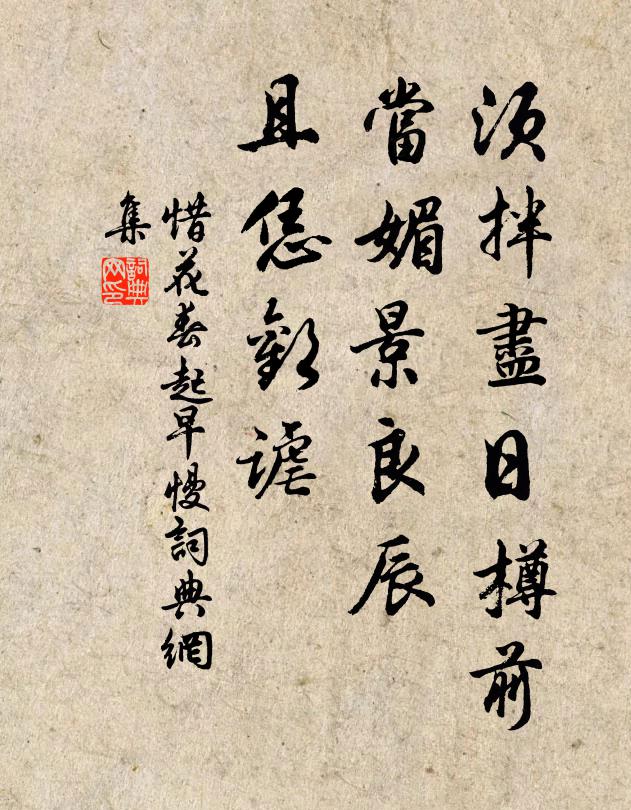 須拌盡日樽前
當媚景良辰
且恁歡謔
惜花春起早慢詞典網
集
詞典
网印